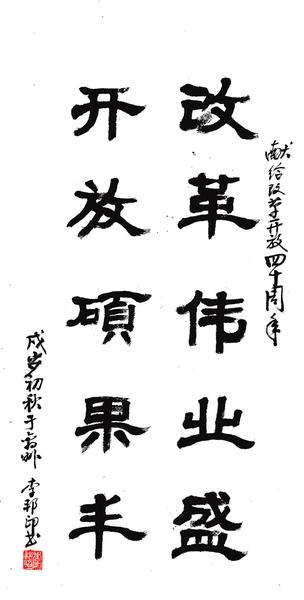 献给改革开放四十周年
改革伟业盛
开放硕果丰
戊戌岁初秋于
李邦